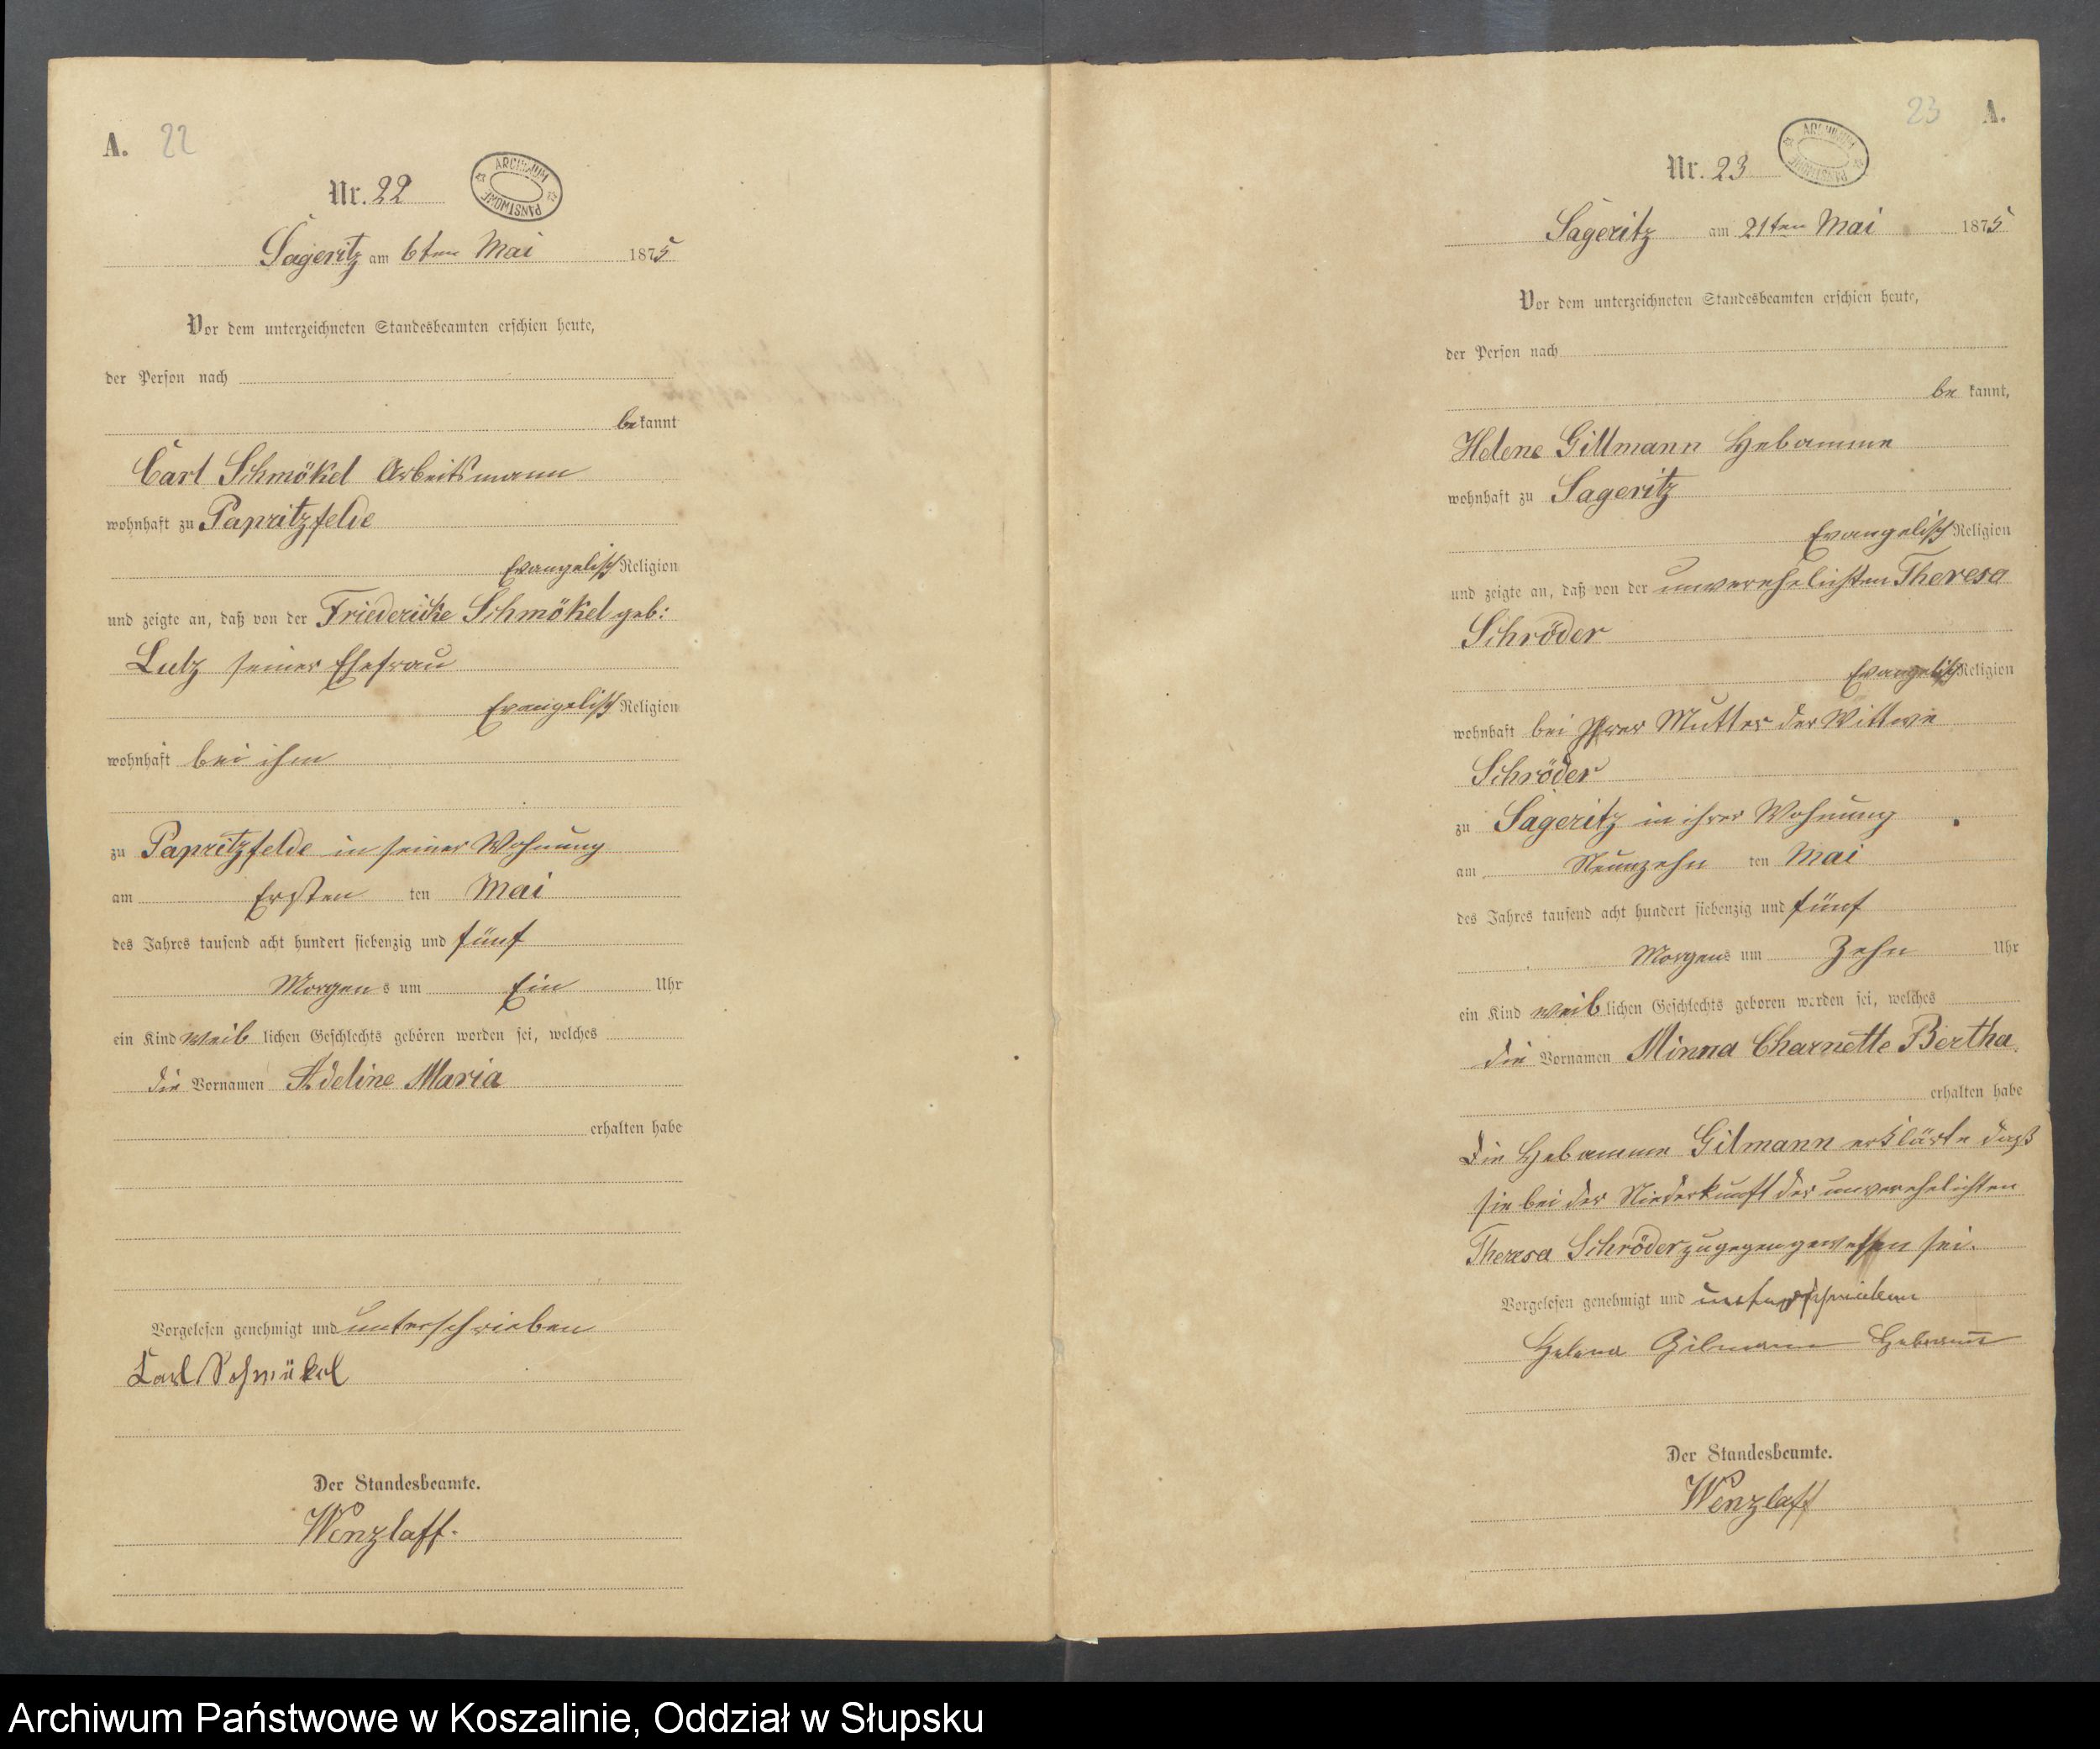 A. 22
ARCHIWUM PAŃSTWOWE
Nr. 22
Sageritz am 6ten Mai 1875
Vor dem unterzeichneten Standesbeamten erschien heute,
der Person nach
bekannt
Carl Schmökel Arbeitsmann
wohnhaft zu Papritzfelde
Evangelisch Religion
und zeigte an, daß von der Friedericke Schmökel geb:
Lutz seiner Ehefrau
Evangelisch Religion
wohnhaft bei ihm
zu Papritzfelde in seiner Wohnung
am Ersten ten Mai
des Jahres tausend acht hundert siebenzig und fünf
Morgens um Ein Uhr
ein Kind weiblichen Geschlechts geboren worden sei, welches
die Vornamen Adeline Maria
erhalten habe
Vorgelesen genehmigt und unterschrieben
Carl Schmökel
Der Standesbeamte.
Wenzlaff.
23 A.
ARCHIWUM PAŃSTWOWE
Nr. 23
Sageritz am 21ten Mai 1875
Vor dem unterzeichneten Standesbeamten erschien heute,
der Person nach
bekannt,
Helene Gillmann Hebamme
wohnhaft zu Sageritz
Evangelisch Religion
und zeigte an, daß von der unverehelichten Theresa
Schröder
Evangelisch Religion
wohnhaft bei Ihrer Mutter der Wittwe
Schröder
zu Sageritz in ihrer Wohnung
am Neunzehn ten Mai
des Jahres tausend acht hundert siebenzig und fünf
Morgens um Zehn Uhr
ein Kind weiblichen Geschlechts geboren worden sei, welches
die Vornamen Minna Charnette Bertha
erhalten habe
Die Hebamme Gilmann erklärte daß
sie bei der Niederkunft der unverehelichten
Theresa Schröder zugegen gewesen sei.
Vorgelesen genehmigt und unterschrieben
Helene Gilmann
Der Standesbeamte.
Wenzlaff
Archiwum Państwowe w Koszalinie, Oddział w Słupsku